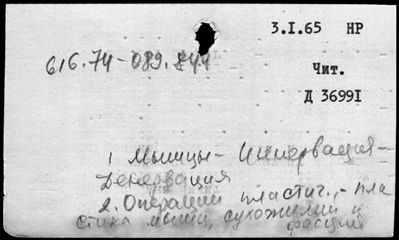 3.I.65 НР
616.74-089.844
Чит.
Д 3699I
1 Мышцы - Иннервация -
Денервация
2. Операции пластич. - пла
стика мышц, сухожилий и
фасций